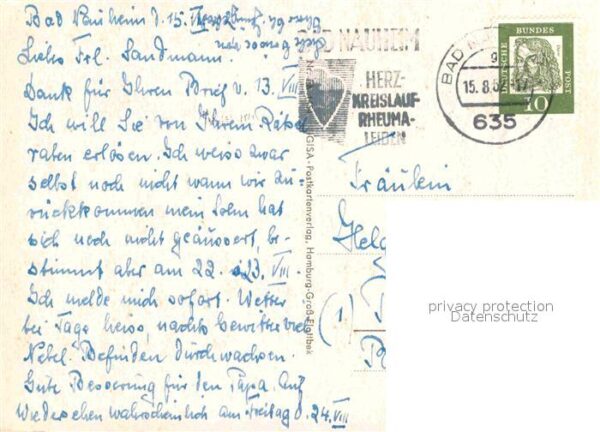 Bad Nauheim d. 15. VIII
Liebe Frl. Sandmann.
Dank für Ihren Brief v. 13. VIII
Ich will Sie von Ihrem Rätsel
raten erlösen. Ich weiss zwar
selbst noch nicht wann wir zu-
rückkommen mein Sohn hat
sich noch nicht geäussert, be-
stimmt aber am 22. 23. VIII.
Ich melde mich sofort. Wetter
bei Tage heiss, nachts Gewitter viel
Nebel. Befinden durchwachsen.
Gute Besserung für den Papa. Auf
Wiedersehen wahrscheinlich am Freitag d. 24. VIII
BAD NAUHEIM
HERZ-
KREISLAUF-
RHEUMA-
LEIDEN
BAD
15.8.
635
DEUTSCHE BUNDESPOST
10
GISA-Postkartenverlag, Hamburg-Groß Flottbek
Fräulein
Helg
(1)
privacy protection
Datenschutz